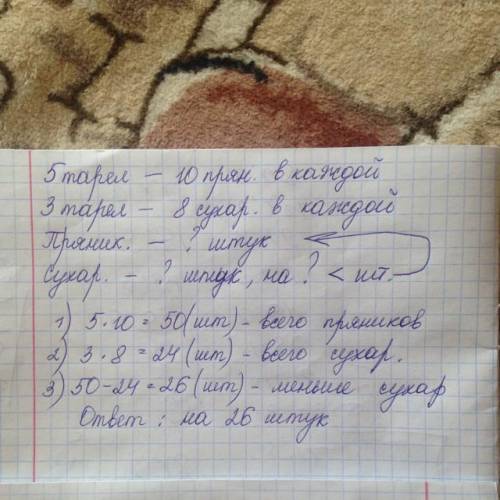 5 тарел – 10 прян. в каждой
3 тарел – 8 сухар. в каждой
Пряник. – ? штук
Сухар. – ? штук, на ? < шт.
1) 5·10 = 50 (шт) - всего пряников
2) 3·8 = 24 (шт) - всего сухар.
3) 50-24 = 26 (шт) - меньше сухар
Ответ: на 26 штук